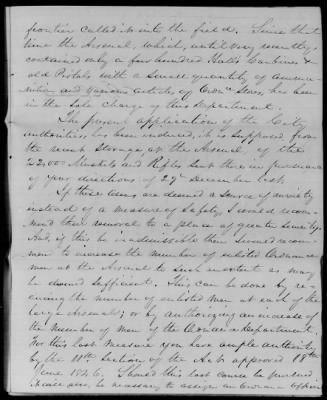 frontier called it into the field. Since that
time the Arsenal, which, until very recently,
contained only a few hundred Halls Carbines &
old Pistols with a small quantity of ammu-
nition and various articles of Ordnce Stores, has been
in the sole charge of this Department.
The present application of the City
authorities, has been induced, it is supposed from
the recent storage at the Arsenal of the
22,000 Muskets and Rifles sent there in pursuance
of your directions of 29th December last.
If these arms are deemed a source of anxiety
instead of a measure of safety, I would recom-
mend their removal to a place of greater security.
And, if this be inadmissible then I would recom-
mend to increase the number of enlisted Ordnance
men at the Arsenal to such an extent as may
be deemed sufficient. This can be done by re-
ducing the number of enlisted men at each of the
large Arsenals; or by authorizing an increase of
the number of men of the Ordnance Department.
For this last measure you have ample authority
by the 11th Section of the Act approved 18th
June 1846. Should this last course be pursued
it would be necessary to assign an Ordnance Officer